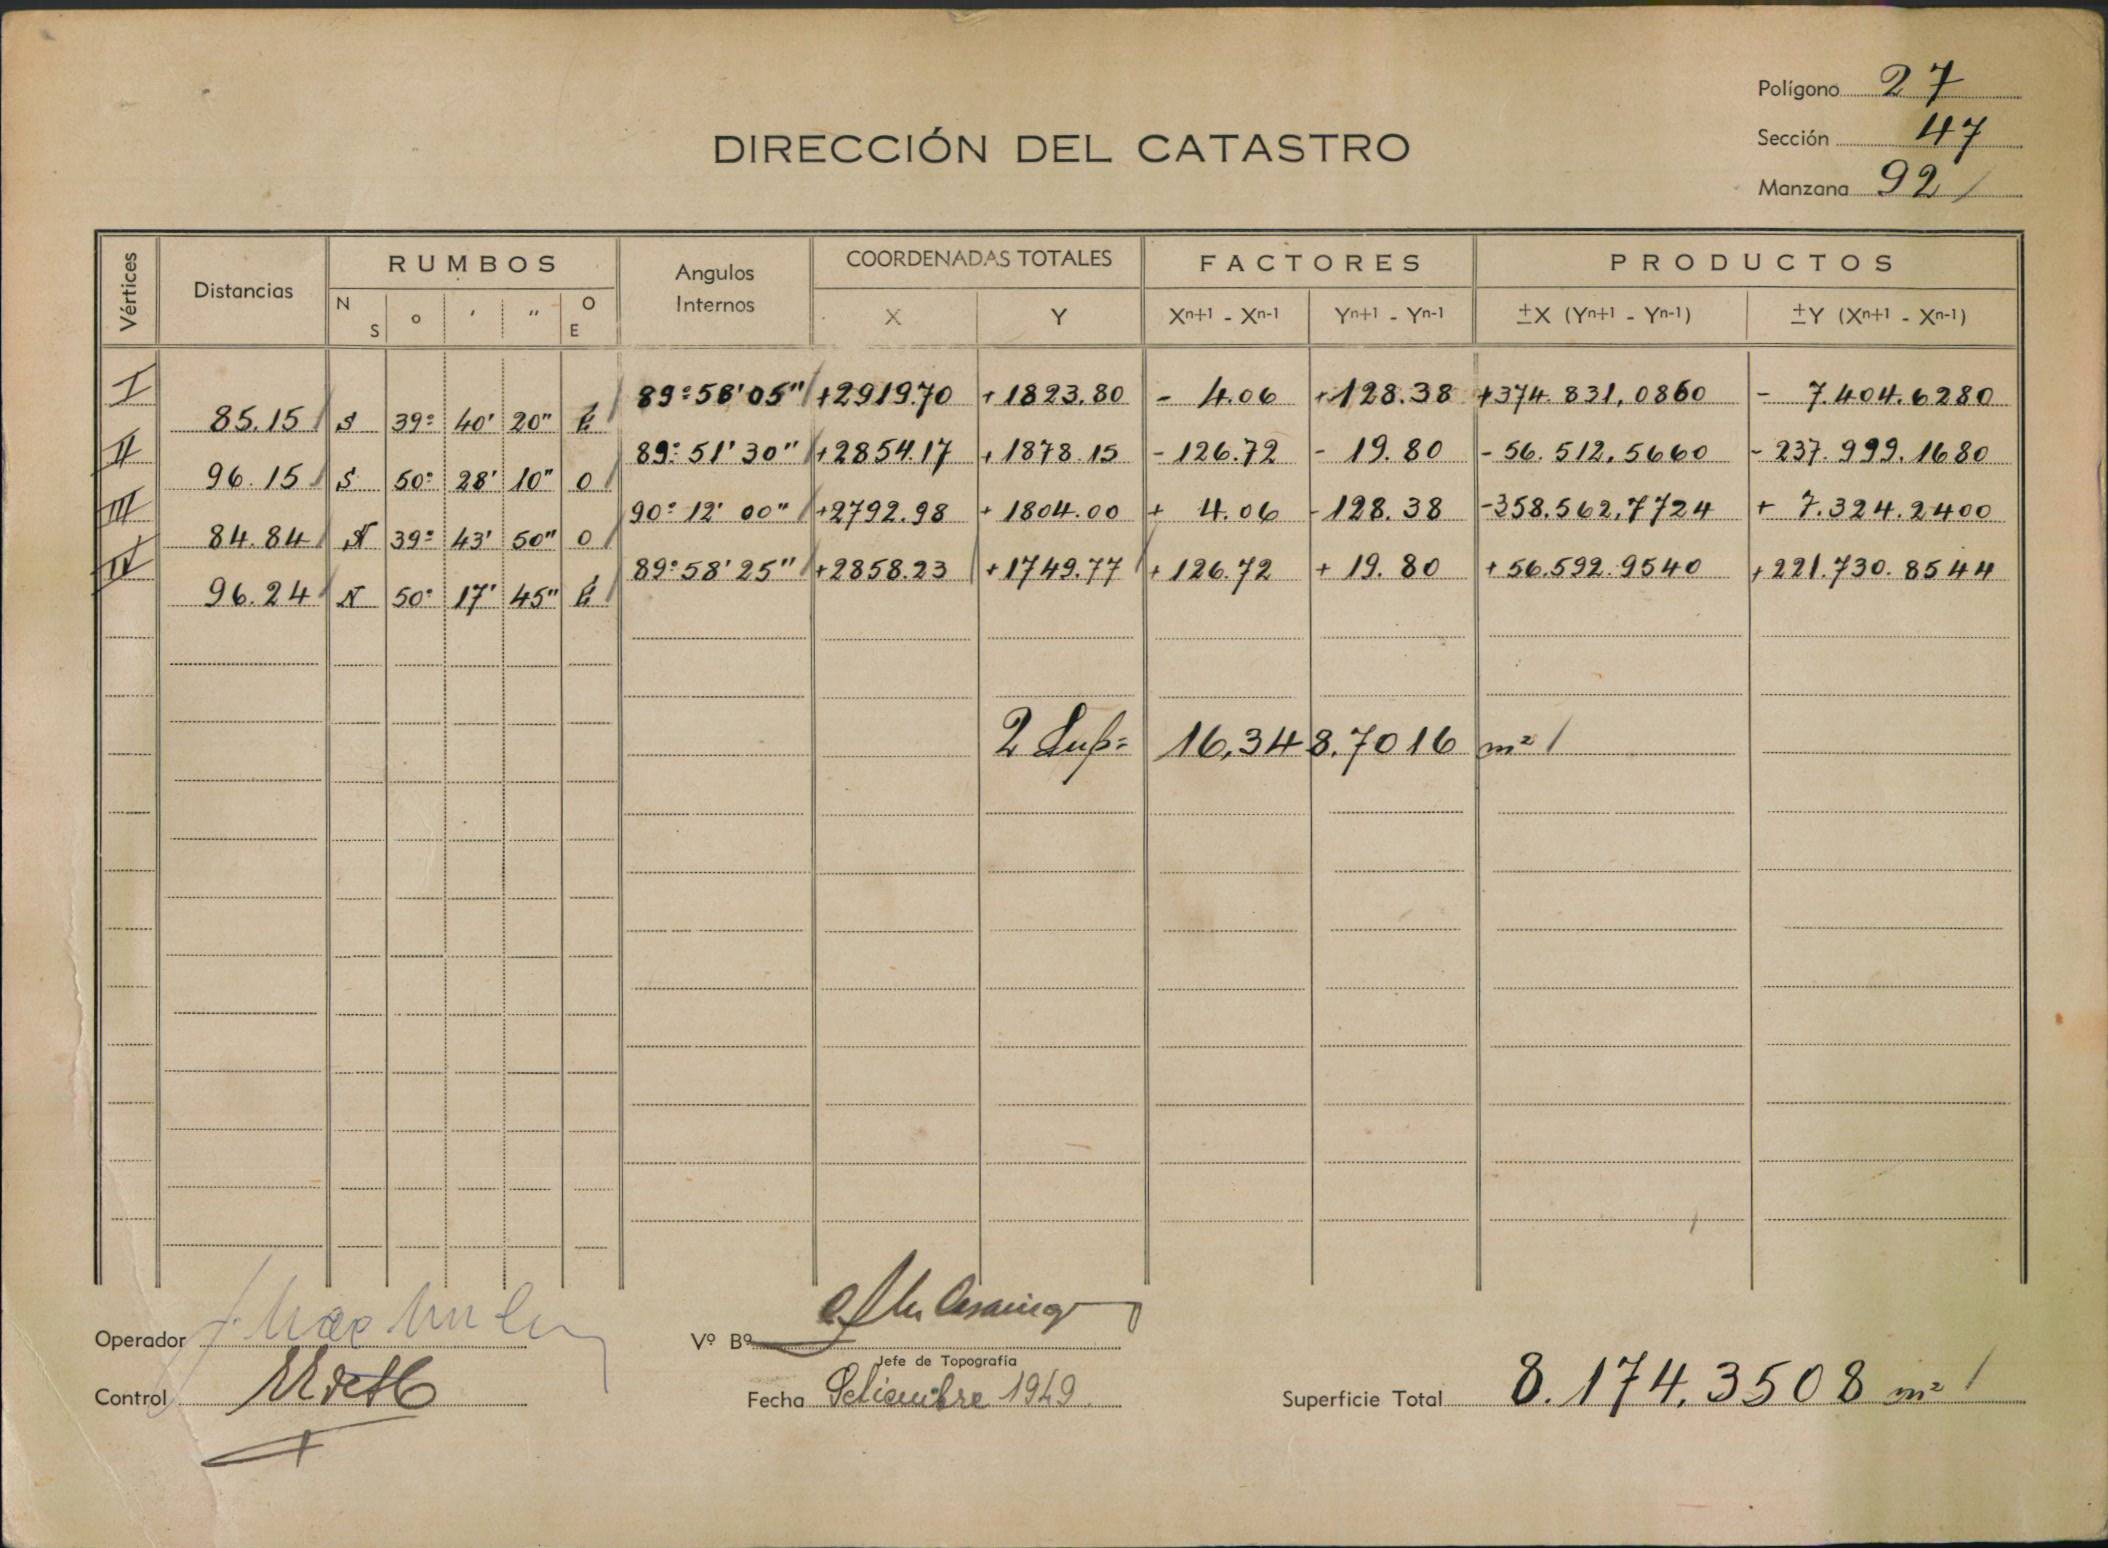 Polígono 27
Sección 47
DIRECCIÓN DEL CATASTRO
Manzana 92 /
Vértices Distancias RUMBOS Angulos Internos COORDENADAS TOTALES FACTORES PRODUCTOS
N S o ' " O E X Y Xn+1 - Xn-1 Yn+1 - Yn-1 ±X (Yn+1 - Yn-1) ±Y (Xn+1 - Xn-1)
I 89º 58' 05" / +2919.70 +1823.80 - 4.06 +128.38 +374.831,0860 - 7.404.6280
85.15 / S 39º 40' 20" E /
II 89º 51' 30" / +2854.17 +1878.15 -126.72 - 19.80 -56.512,5660 -237.999.1680
96.15 / S 50º 28' 10" O /
III 90º 12' 00" / +2792.98 +1804.00 + 4.06 -128.38 -358.562,7724 + 7.324.2400
84.84 / N 39º 43' 50" O /
IV 89º 58' 25" / +2858.23 / +1749.77 / +126.72 + 19.80 +56.592.9540 +221.730.8544
96.24 / N 50º 17' 45" E /
2 Sup= 16,348.7016 m² /
Operador
Vº Bº
Jefe de Topografía
Control
Fecha Setiembre 1949.
Superficie Total 8.174,3508 m² /